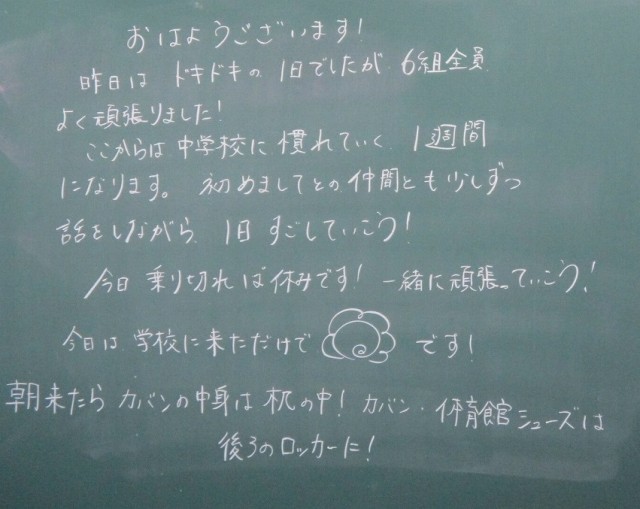 おはようございます!
昨日は ドキドキの 1日でしたが 6組全員
よく頑張りました!
ここからは 中学校に 慣れていく 1週間
になります。 初めましての 仲間とも少しずつ
話をしながら 1日 すごしていこう!
今日 乗り切れば休みです! 一緒に頑張っていこう!
今日は 学校に来ただけで です!
朝来たら カバンの中身は 机の中! カバン・体育館シューズは
後ろのロッカーに!